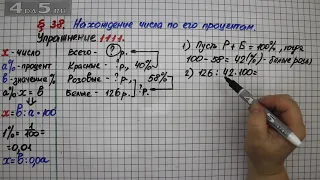 4apok.ru
§ 38. Нахождение числа по его процентам.
Упражнение 1111.
x - число
a% - процент
b - значение %
a% x = b
x = b : a · 100
1% = 1/100 =
= 0,01
x = b : 0,0a
Всего - ? р.
Красные - ? р., 40%
Розовые - ? р., 58%
Белые - 126 р. ? р.
1) Пусть Р + Б = 100%, тогда
100 - 58 = 42 (%) - белые розы
2) 126 : 42 · 100 =